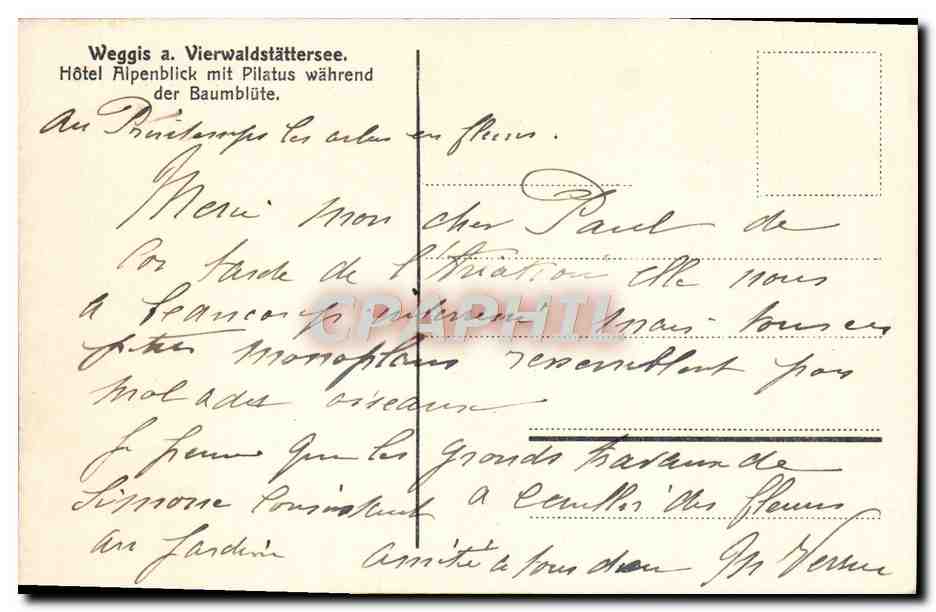 Weggis a. Vierwaldstättersee.
Hôtel Alpenblick mit Pilatus während
der Baumblüte.
Au Printemps les arbres en fleurs.
Merci mon cher Paul de
ta carte de l'Aviation elle nous
a beaucoup intéressé mais tous ces
petits monoplans ressemblent pas
mal à des oiseaux
Je pense que les grands travaux de
Simone consistent à cueillir des fleurs
au Jardin amitié à tous deux M
CPAPHIL